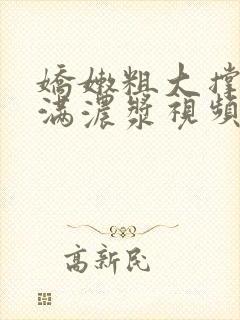 嬌嫩粗大撐
滿濃漿視頻
高新民